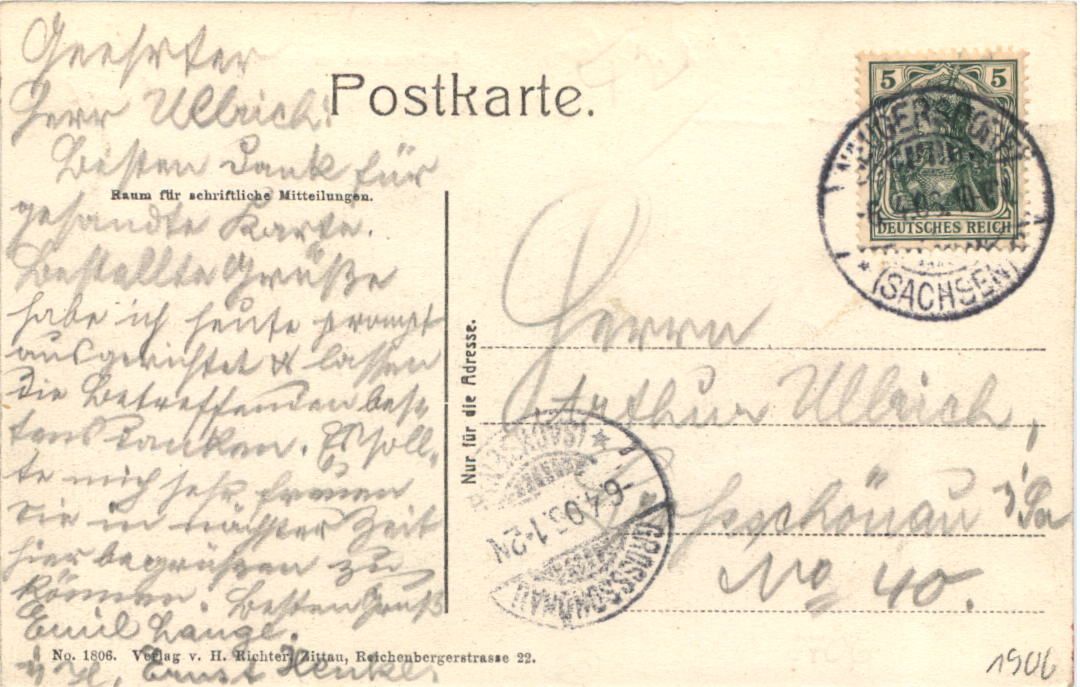 Postkarte.
Raum für schriftliche Mitteilungen.
Geehrter
Herr Ullrich!
Besten Dank für
gesandte Karte.
Bestellte Grüße
habe ich heute prompt
ausgerichtet & lassen
die Betreffenden bes-
tens danken. Es soll-
te mich sehr freuen
Sie in nächster Zeit
hier begrüssen zu
können. Besten Gruß
Emil Lange.
Ernst Henke
No. 1806. Verlag v. H. Richter, Zittau, Reichenbergerstrasse 22.
Nur für die Adresse.
5 5
DEUTSCHES REICH
(SACHSEN)
Herrn
Arthur Ullrich,
Grosschönau i/Sa
No 40.
GROSSSCHÖNAU
(SACHSEN)
6.4.06.1-2N
1906